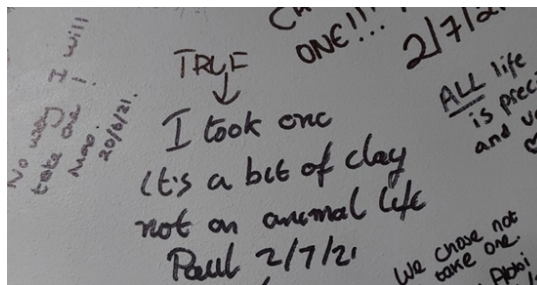 No way I will
take one!
Mao.
20/6/21.
ONE!!!
2/7/2
TRUE
I took one
It's a bit of clay
not an animal life
Paul 2/7/21
ALL life
is preci
and
We chose not
take one.